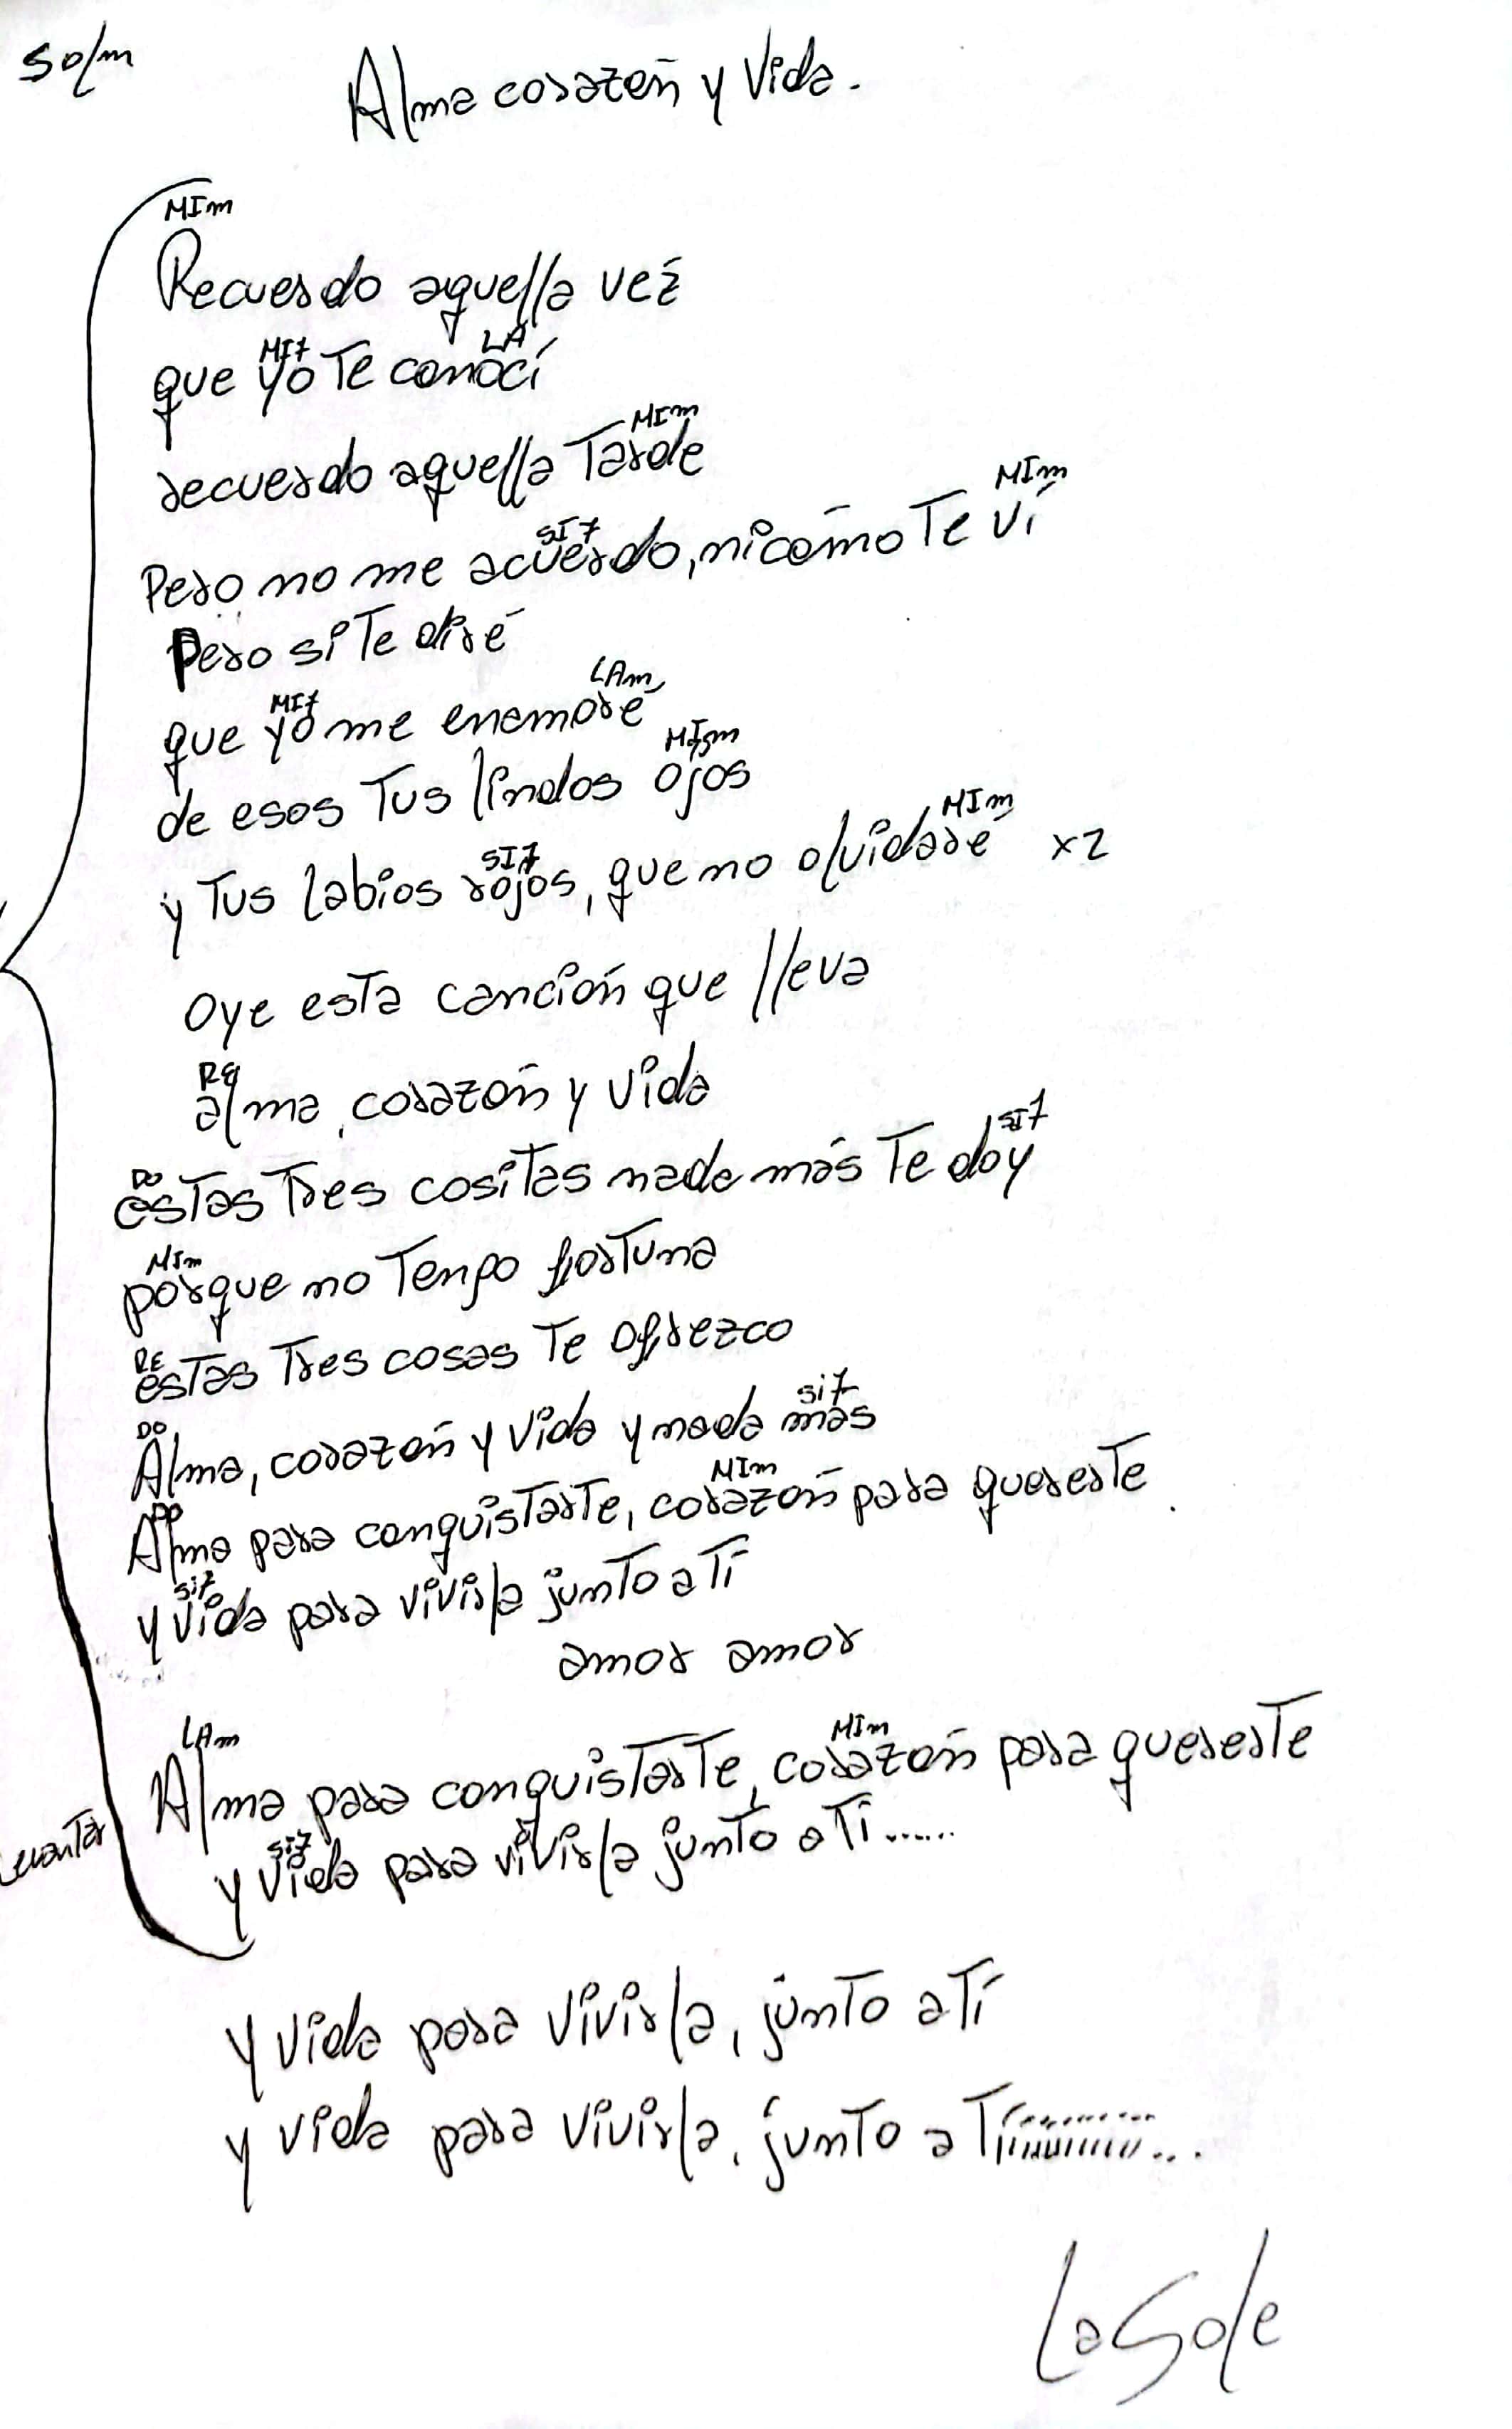 SOLm
Alma corazón y Vida.
MIm
Recuerdo aquella vez
MI7 LA
que yo Te conocí
MIm
recuerdo aquella Tarde
SI7 MIm
Pero no me acuerdo, ni cómo Te ví
Pero si Te diré
MI7 LAm
que yo me enamoré
MIm
de esos Tus lindos ojos
SI7 MIm
y Tus labios rojos, que no olvidaré x2
Oye esta canción que lleva
RE
alma, corazón y vida
DO SI7
estas Tres cositas nada más Te doy
MIm
porque no Tengo fortuna
RE
estas Tres cosas Te ofrezco
DO Si7
Alma, corazón y Vida y nada más
DO MIm
Alma para conquistarte, corazón para quererte.
Si7
y vida para vivirla junto a Tí
amor amor
LAm MIm
Alma para conquistarTe, corazón para quererte
SI7
y vida para vivirla junto a Tí......
Levantar
y vida para vivirla, junto a Tí
y vida para vivirla, junto a Tíííííííííí...
La Sole